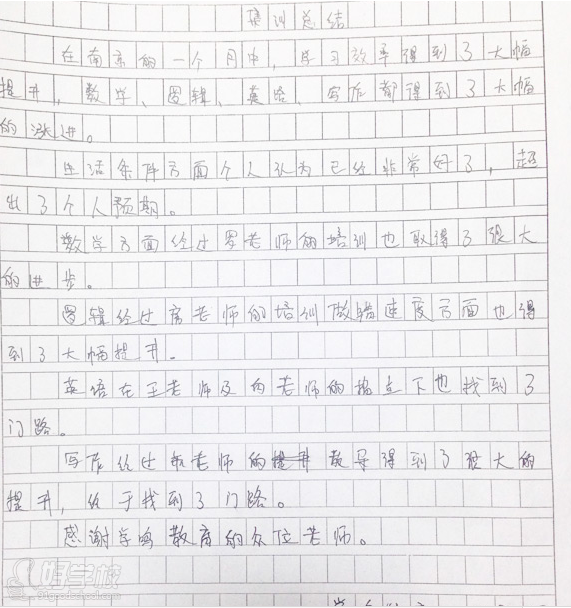 集训总结
在南京的一个月中，学习效率得到了大幅
提升，数学、逻辑、英语、写作都得到了大幅
的涨进。
生活条件方面个人认为已经非常好了，超
出了个人预期。
数学方面经过罗老师的培训也取得了很大
的进步。
逻辑经过席老师的培训做题速度方面也得
到了大幅提升。
英语在王老师及向老师的指点下也找到了
门路。
写作经过 老师的 教导得到了很大的
提升，终于找到了门路。
感谢学鸣教育的众位老师。
好学校